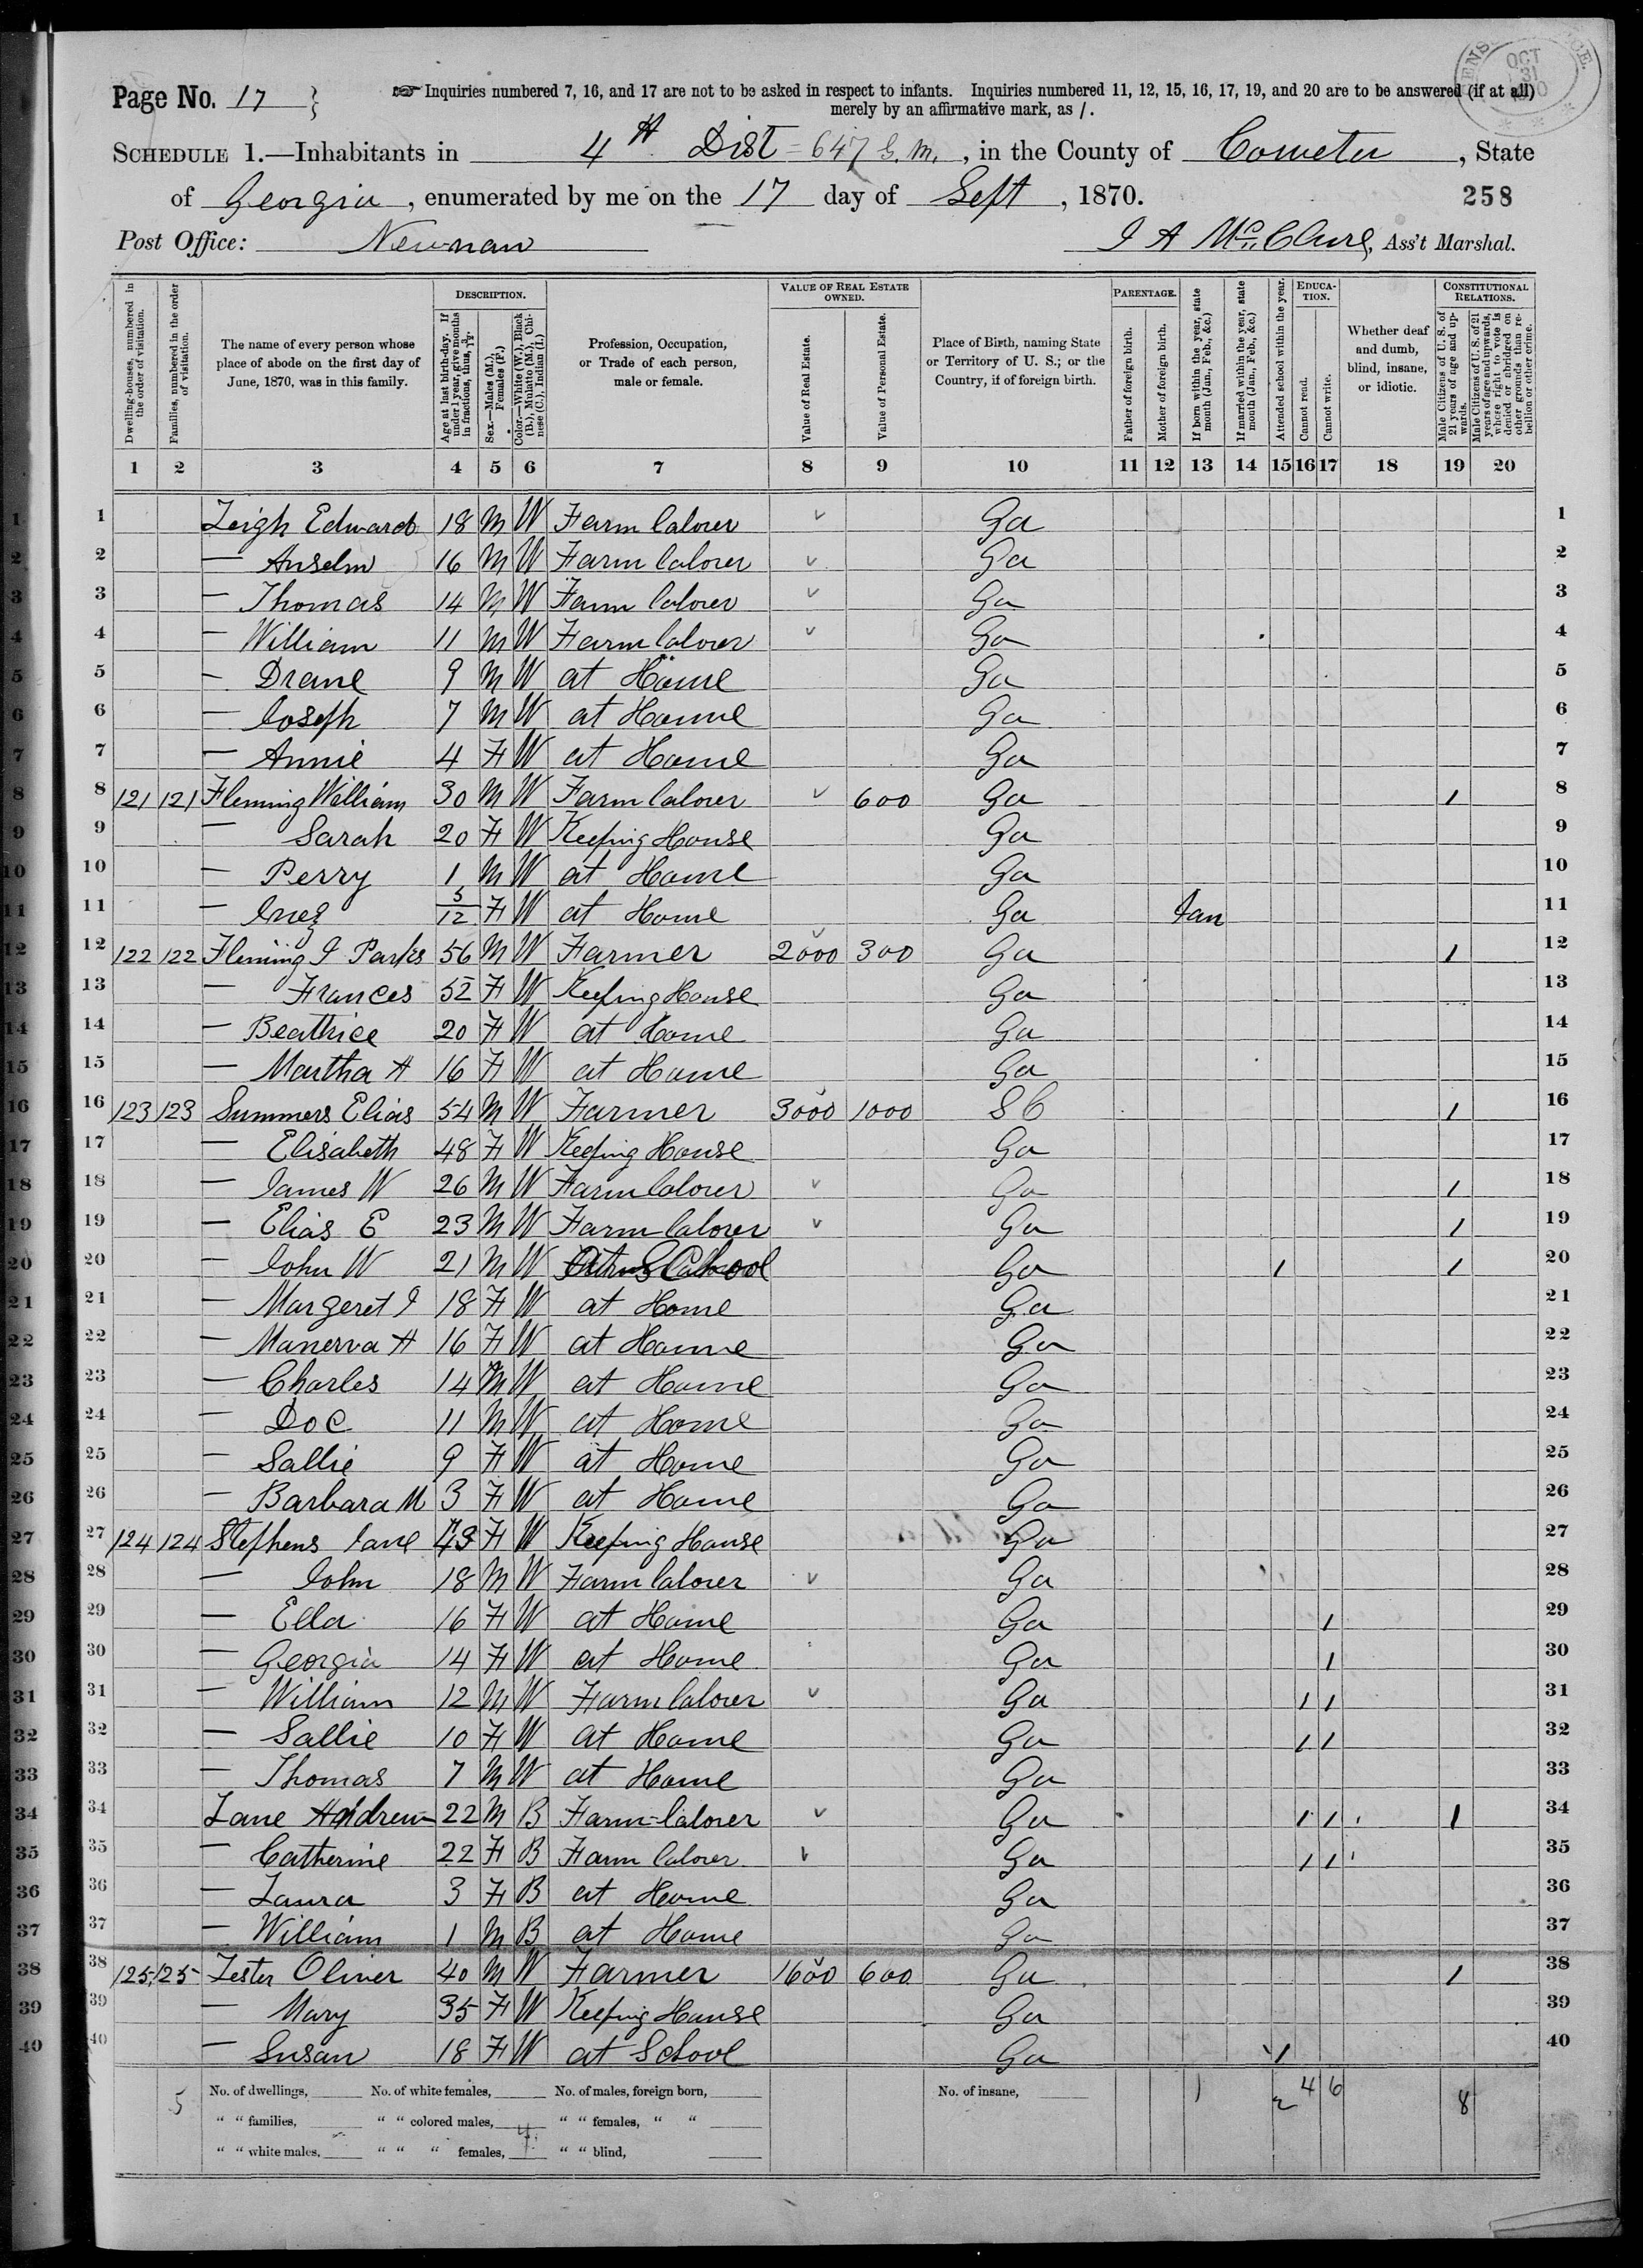 CENSUS OFFICE. OCT 31 1870
Page No. 17
☞ Inquiries numbered 7, 16, and 17 are not to be asked in respect to infants. Inquiries numbered 11, 12, 15, 16, 17, 19, and 20 are to be answered (if at all)
merely by an affirmative mark, as /.
SCHEDULE 1.—Inhabitants in 4th Dist = 647 G. M., in the County of Coweta, State
of Georgia, enumerated by me on the 17 day of Sept, 1870. 258
Post Office: Newnan J A McClure, Ass't Marshal.
Dwelling-houses, numbered in the order of visitation.
Families, numbered in the order of visitation.
The name of every person whose place of abode on the first day of June, 1870, was in this family.
DESCRIPTION.
Age at last birth-day. If under 1 year, give months in fractions, thus, 3/12.
Sex.—Males (M.), Females (F.)
Color.—White (W.), Black (B.), Mulatto (M.), Chinese (C.), Indian (I.)
Profession, Occupation, or Trade of each person, male or female.
VALUE OF REAL ESTATE OWNED.
Value of Real Estate.
Value of Personal Estate.
Place of Birth, naming State or Territory of U. S.; or the Country, if of foreign birth.
PARENTAGE.
Father of foreign birth.
Mother of foreign birth.
If born within the year, state month (Jan., Feb., &c.)
If married within the year, state month (Jan., Feb., &c.)
Attended school within the year.
EDUCATION.
Cannot read.
Cannot write.
Whether deaf and dumb, blind, insane, or idiotic.
CONSTITUTIONAL RELATIONS.
Male Citizens of U. S. of 21 years of age and upwards.
Male Citizens of U. S. of 21 years of age and upwards, where right to vote is denied or abridged on other grounds than rebellion or other crime.
1 2 3 4 5 6 7 8 9 10 11 12 13 14 15 16 17 18 19 20
1 Leigh Edward 18 M W Farm laborer Ga 1
2 — Anselm 16 M W Farm laborer Ga 2
3 — Thomas 14 M W Farm laborer Ga 3
4 — William 11 M W Farm laborer Ga 4
5 — Drane 9 M W at Home Ga 5
6 — Joseph 7 M W at Home Ga 6
7 — Annie 4 F W at Home Ga 7
8 121 121 Fleming William 30 M W Farm laborer 600 Ga / 8
9 — Sarah 20 F W Keeping House Ga 9
10 — Perry 1 M W at Home Ga 10
11 — Inez 5/12 F W at Home Ga Jan 11
12 122 122 Fleming J Parks 56 M W Farmer 2000 300 Ga / 12
13 — Frances 52 F W Keeping House Ga 13
14 — Beatrice 20 F W at Home Ga 14
15 — Martha A 16 F W at Home Ga 15
16 123 123 Summers Elias 54 M W Farmer 3000 1000 S C / 16
17 — Elisabeth 48 F W Keeping House Ga 17
18 — James W 26 M W Farm laborer Ga / 18
19 — Elias E 23 M W Farm laborer Ga / 19
20 — John W 21 M W at School Ga / / 20
21 — Margeret J 18 F W at Home Ga 21
22 — Manerva A 16 F W at Home Ga 22
23 — Charles 14 M W at Home Ga 23
24 — Doc 11 M W at Home Ga 24
25 — Sallie 9 F W at Home Ga 25
26 — Barbara M 3 F W at Home Ga 26
27 124 124 Stephens Jane F W Keeping House Ga 27
28 — John 18 M W Farm laborer Ga 28
29 — Ella 16 F W at Home Ga / 29
30 — Georgia 14 F W at Home Ga / 30
31 — William 12 M W Farm laborer Ga / / 31
32 — Sallie 10 F W at Home Ga / / 32
33 — Thomas 7 M W at Home Ga 33
34 Lane Andrew 22 M B Farm laborer Ga / / / 34
35 — Catherine 22 F B Farm laborer Ga / / 35
36 — Laura 3 F B at Home Ga 36
37 — William 1 M B at Home Ga 37
38 125 125 Lester Oliver 40 M W Farmer 1600 600 Ga / 38
39 — Mary 35 F W Keeping House Ga 39
40 — Susan 18 F W at School Ga / 40
5 No. of dwellings, No. of white females, No. of males, foreign born, No. of insane, 1 2 4 6 8
" " families, " " colored males, " " females, " "
" " white males, " " " females, " " blind,